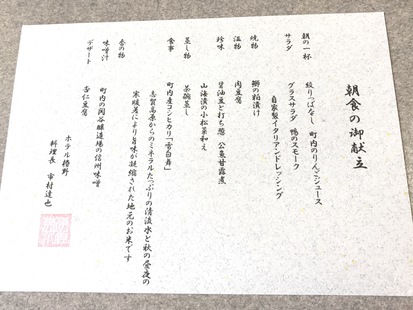 朝食の御献立
朝の一杯 絞りっぱなし 町内のりんごジュース
サラダ グラスサラダ 鴨のスモーク
自家製イタリアンドレッシング
焼物 鰤の粕漬け
温物 肉豆腐
珍味 醤油豆と打ち豆 公魚甘露煮
山海漬の小松菜和え
蒸し物 茶碗蒸し
食事 町内産コシヒカリ「雪白舞」
志賀高原からのミネラルたっぷりの清流水と秋の昼夜の
寒暖差により旨味が凝縮された地元のお米です
香の物
味噌汁 町内の関谷醸造場の信州味噌
デザート 杏仁豆腐
ホテル椿野
料理長 市村達也